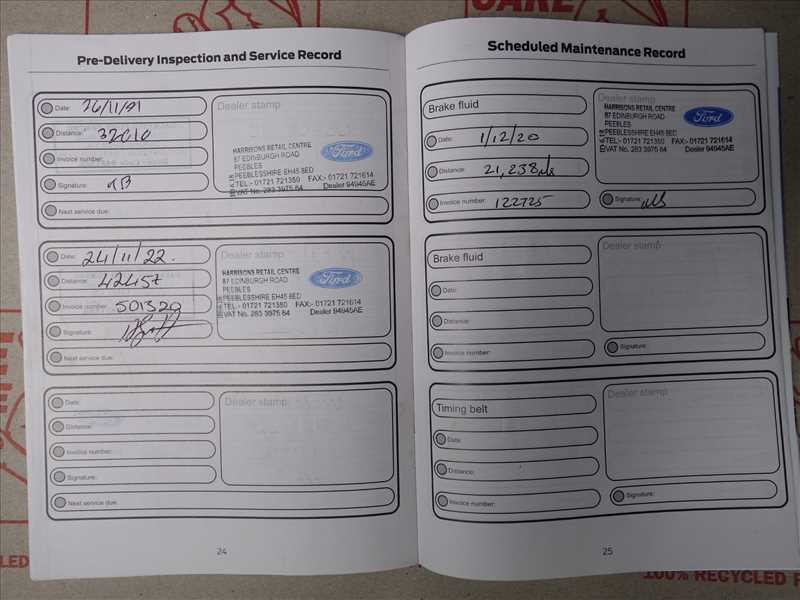 CARE
Pre-Delivery Inspection and Service Record
Date: 26/11/21
Distance: 32010
Invoice number:
Signature:
Next service due:
Dealer stamp
HARRISONS RETAIL CENTRE
87 EDINBURGH ROAD
PEEBLES
PEEBLESSHIRE EH45 8ED
TEL:- 01721 721350 FAX:- 01721 721614
VAT No. 283 3975 64 Dealer 94945AE
Ford
Date: 24/11/22.
Distance: 42457
Invoice number: 501329
Signature:
Next service due:
Dealer stamp
HARRISONS RETAIL CENTRE
87 EDINBURGH ROAD
PEEBLES
PEEBLESSHIRE EH45 8ED
TEL:- 01721 721350 FAX:- 01721 721614
VAT No. 283 3975 64 Dealer 94945AE
Ford
Date:
Distance:
Invoice number:
Signature:
Next service due:
Dealer stamp
24
Scheduled Maintenance Record
Brake fluid
Date: 1/12/20
Distance: 21,238mls
Invoice number: 122725
Dealer stamp
HARRISONS RETAIL CENTRE
87 EDINBURGH ROAD
PEEBLES
PEEBLESSHIRE EH45 8ED
TEL:- 01721 721350 FAX:- 01721 721614
VAT No. 283 3975 64 Dealer 94945AE
Ford
Signature:
Brake fluid
Date:
Distance:
Invoice number:
Dealer stamp
Signature:
Timing belt
Date:
Distance:
Invoice number:
Dealer stamp
Signature:
25
100% RECYCLED